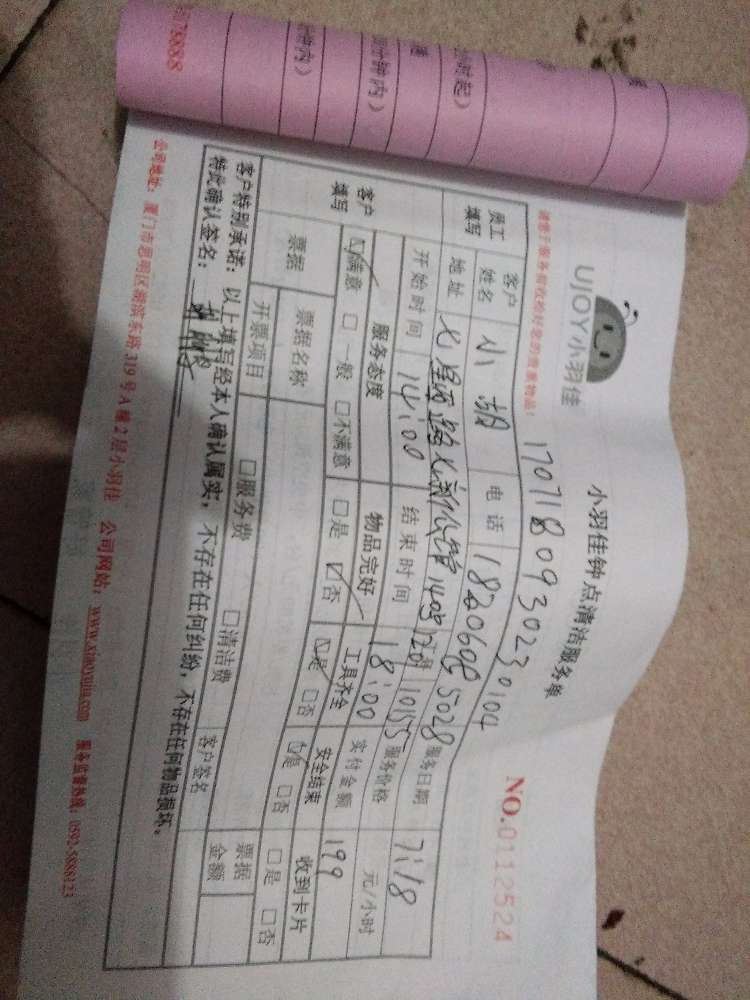 小羽佳钟点清洁服务单
UJOY小羽佳
NO.0112524
请您于服务前收检好您的贵重物品!
17071809302230104
员工填写
客户姓名 小胡 电话 18206085028 服务日期 7.18
地址 服务价格 元/小时
开始时间 14:00 结束时间 18:00 实付金额 199
客户填写
服务态度 物品完好 工具齐全 安全结束 收到卡片
☑满意 □一般 □不满意 □是 ☑否 ☑是 □否 ☑是 □否 □是 □否
票据 票据名称 票据金额
开票项目 □服务费 □清洁费 客户签名
客户特别承诺:以上填写经本人确认属实,不存在任何纠纷,不存在任何物品损坏。
特此确认签名:
公司地址:厦门市思明区湖滨东路319号A幢2层小羽佳 公司网站:www.xiaoyujia.com 服务监督热线:0592-5888123